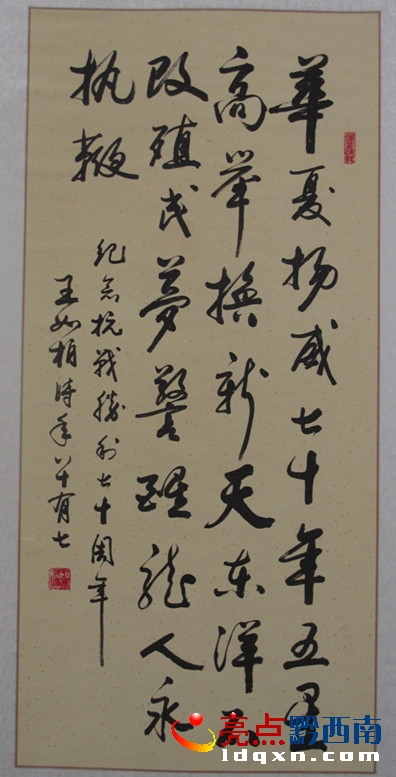 華夏扬威七十年五星
高举换新天东洋不
改殖民夢警醒龙人永
执鞭
纪念抗战胜利七十周年
王如柏时年八十有七
亮点黔西南
ldqxn.com